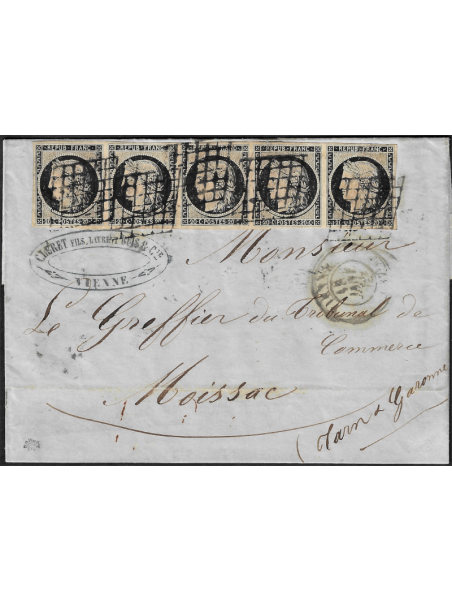 REPUB·FRANC· REPUB·FRANC· REPUB·FRANC· REPUB·FRANC· REPUB·FRANC·
20·C·POSTES·20 20·C·POSTES·20 20·C·POSTES·20 20·C·POSTES·20 20·C·POSTES·20
FILS, LAURENT & CIE
VIENNE
Monsieur
Le Greffier du Tribunal de
Commerce
Moissac
(Tarn & Garonne